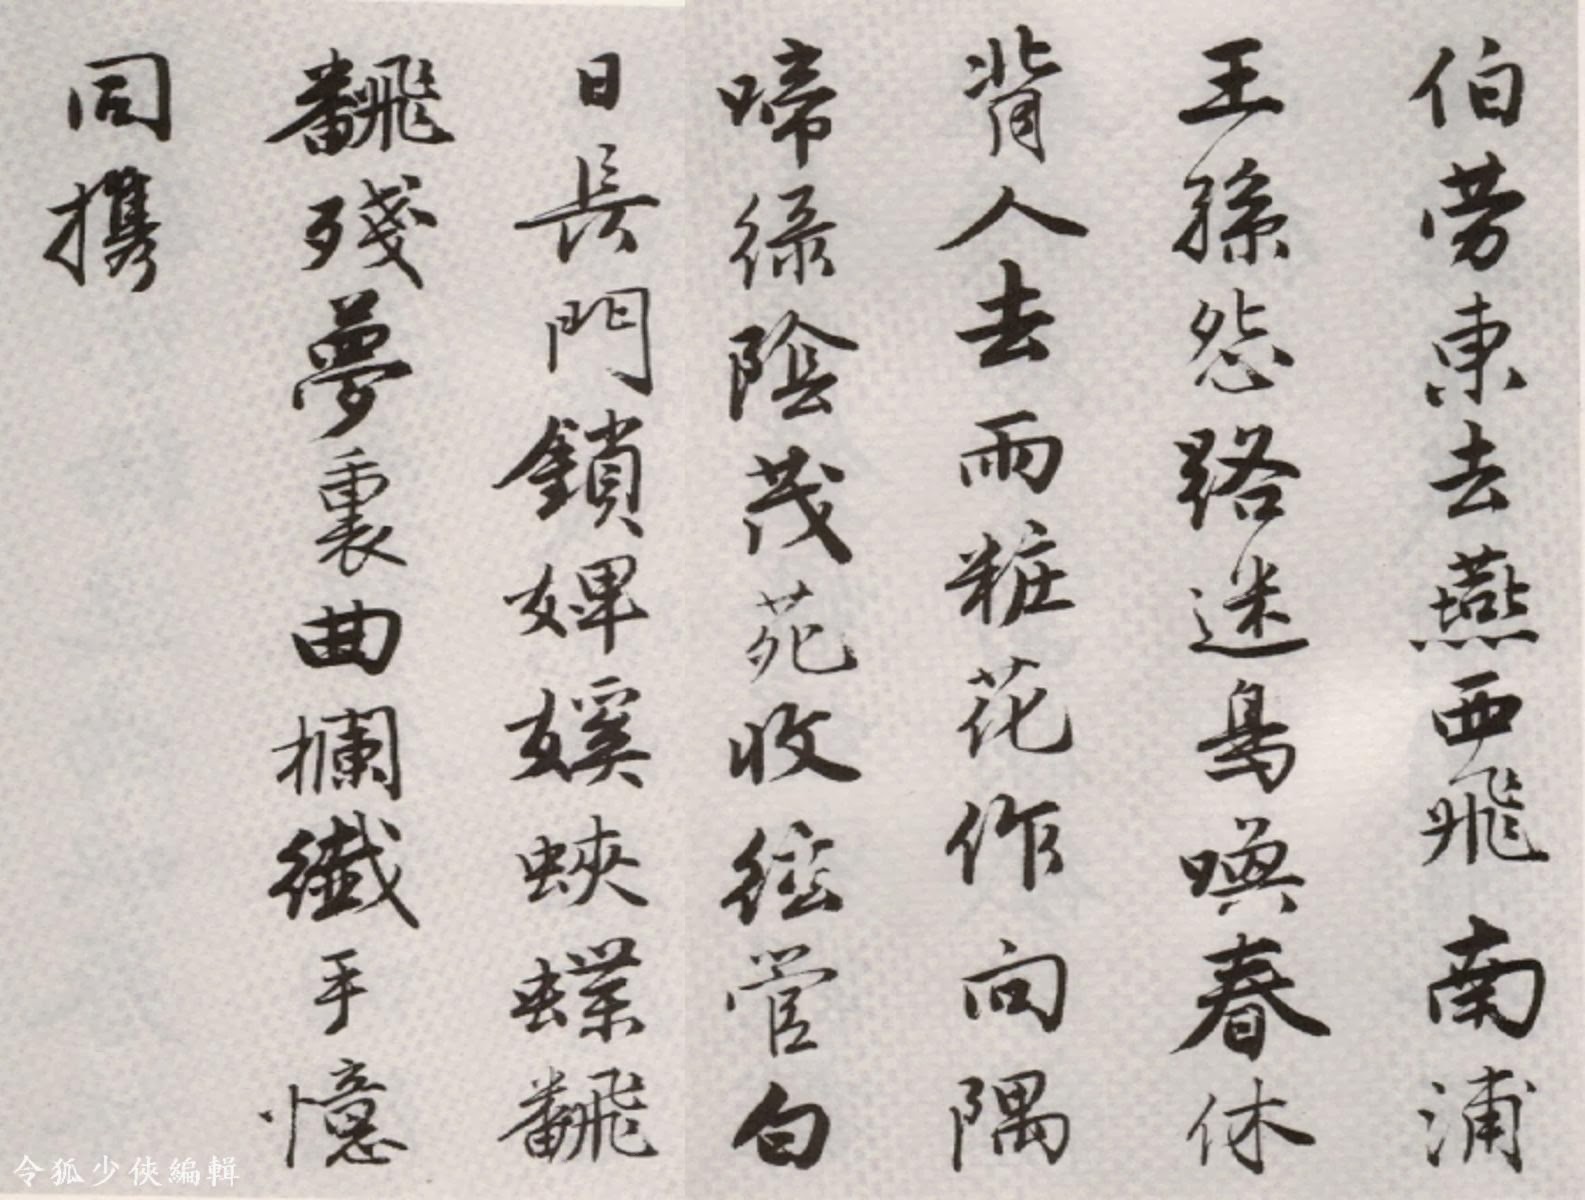 伯勞東去燕西飛南浦
王孫怨路迷鳥喚春休
背人去雨粧花作向隅
啼綠陰茂苑收絃管白
日長門鎖婢媛蛺蝶飜
飜殘夢裏曲欄纖手憶
同攜
令狐少俠編輯